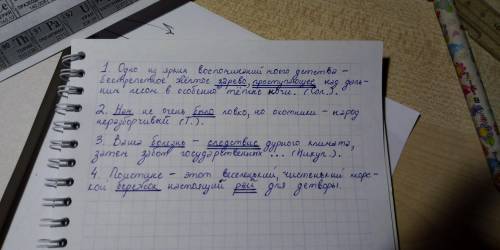 1. Одно из ярких воспоминаний моего детства –
бестрепетное жёлтое зарево, проступающее над даль-
ним лесом в особенно тёплые ночи. (Сол.).
2. Нам не очень было ловко, но охотники – народ
неразборчивый (Т.).
3. Ваша болезнь – следствие дурного климата,
затем забот государственных ... (Пикул.).
4. Поистине – этот веселенький, чистенький морс-
кой бережок настоящий рай для детворы.
90 Th
91 Pa
92 U